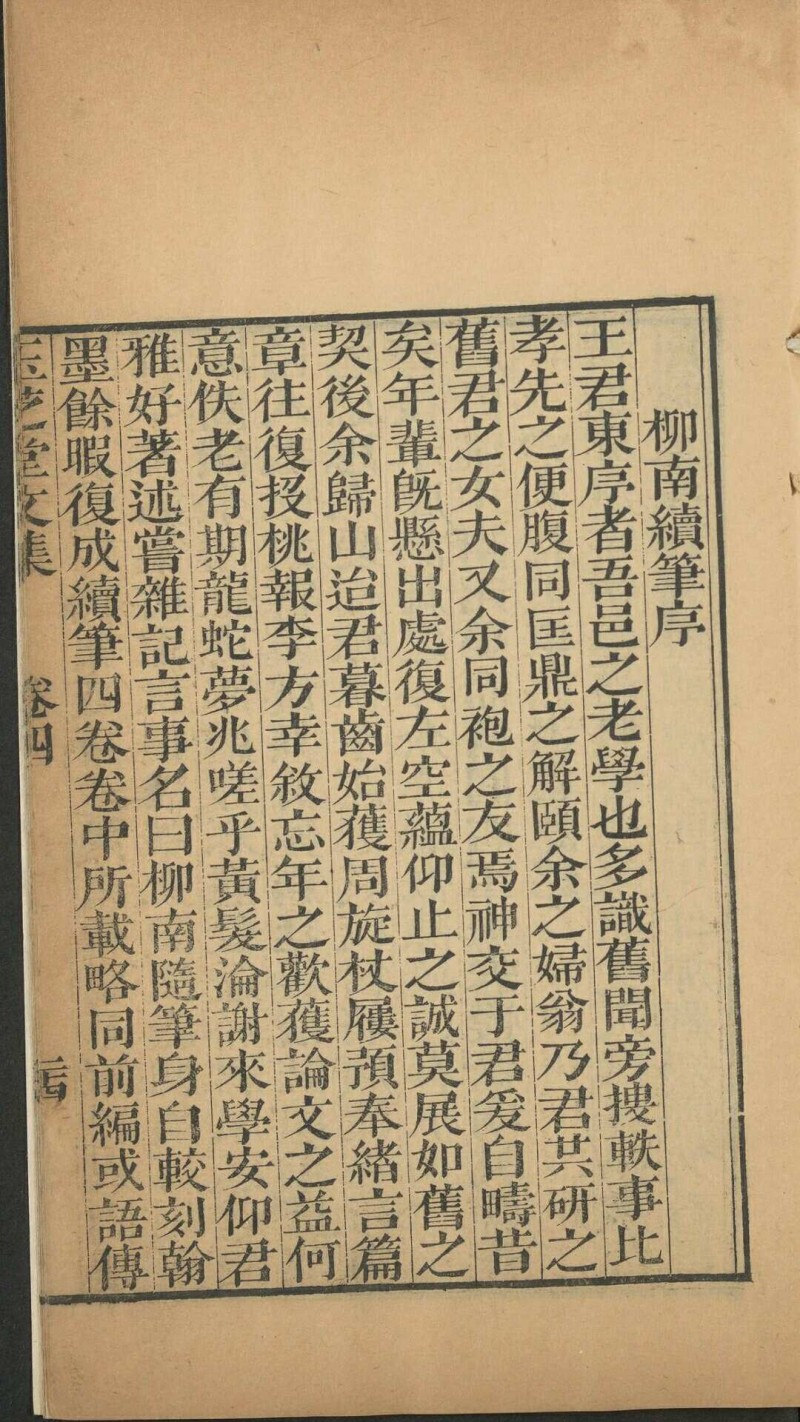 柳南續筆序
王君東序者吾邑之老學也多識舊聞旁搜軼事比
孝先之便腹同匡鼎之解頤余之婦翁乃君共研之
舊君之女夫又余同袍之友焉神交于君爰自疇昔
矣年輩旣懸出處復左空蘊仰止之誠莫展如舊之
契後余歸山迨君暮齒始獲周旋杖屨預奉緒言篇
章往復投桃報李方幸敘忘年之歡獲論文之益何
意佚老有期龍蛇夢兆嗟乎黃髮淪謝來學安仰君
雅好著述嘗雜記言事名曰柳南隨筆身自較刻翰
墨餘暇復成續筆四卷卷中所載略同前編或語傳
玉芝堂文集 卷四